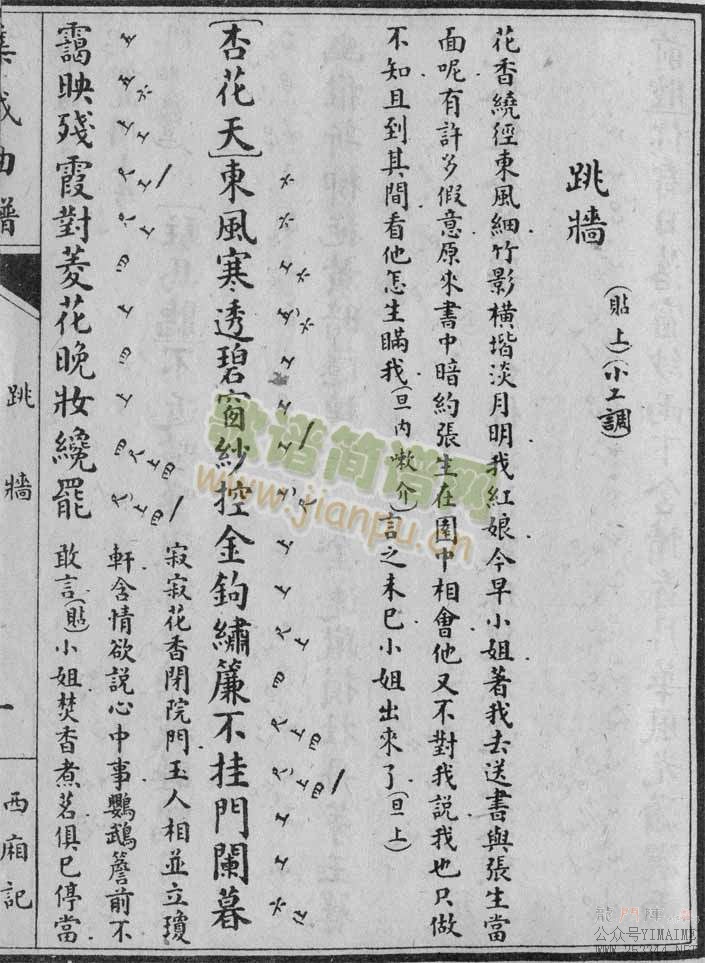 跳牆
(貼上)(小工調)
花香繞徑東風細竹影橫堦淡月明我紅娘今早小姐著我去送書與張生當
面呢有許多假意原來書中暗約張生在園中相會他又不對我説我也只做
不知且到其間看他怎生瞞我(旦内嗽介)言之未已小姐出來了(旦上)
[杏花天]東風寒透碧窗紗控金鉤繡簾不挂門闌暮
寂寂花香閉院門玉人相並立瓊
靄映殘霞對菱花晚妝纔罷
軒含情欲説心中事鸚鵡簷前不
敢言(貼)小姐焚香煮茗俱已停當
集成曲譜
跳牆
一
西廂記
歌谱简谱网
www.jianpu.cn
公众号YIMAIME